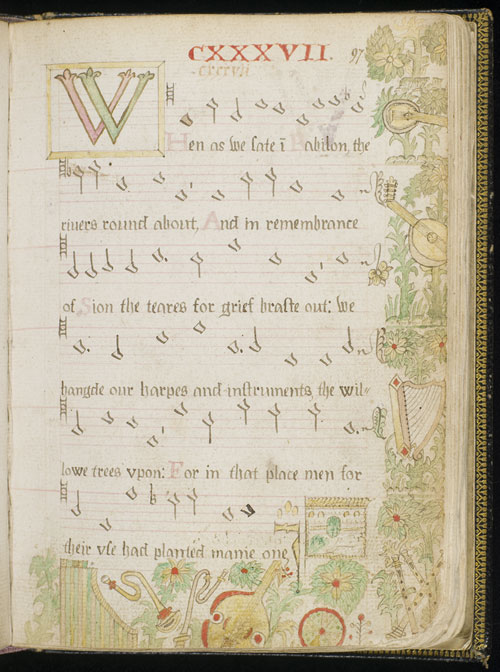 CXXXVII.
97
cxxxvii
When as we sate ī Babilon, the
rivers round about, And in remembrance
of Sion the teares for grief braste out: we
hangde our harpes and instruments the wil=
lowe trees vpon: For in that place men for
their vse had planted manie one